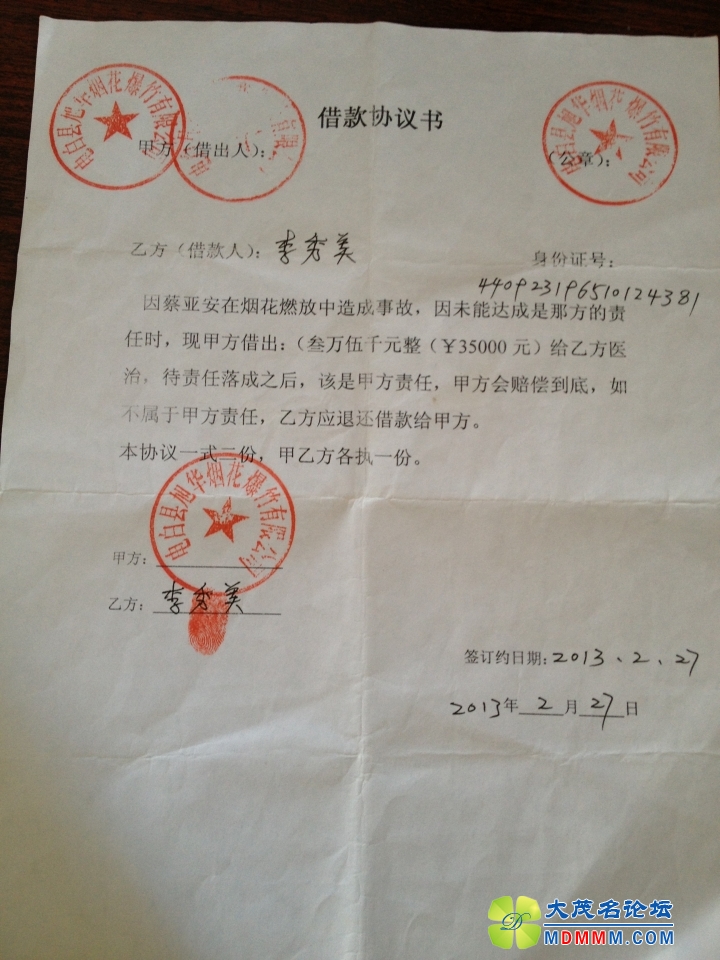 借款协议书
电白县旭华烟花爆竹有限公司
有限
电白县旭华烟花爆竹有限公司
甲方（借出人）： （公章）：
乙方（借款人）：李秀美 身份证号：
440923196510124381
因蔡亚安在烟花燃放中造成事故，因未能达成是那方的责
任时，现甲方借出：（叁万伍千元整（￥35000 元）给乙方医
治，待责任落成之后，该是甲方责任，甲方会赔偿到底，如
不属于甲方责任，乙方应退还借款给甲方。
本协议一式二份，甲乙方各执一份。
电白县旭华烟花爆竹有限公司
甲方：
乙方：李秀美
签订约日期：2013、2、27
2013年 2 月 27 日
大茂名论坛
MDMMM.COM